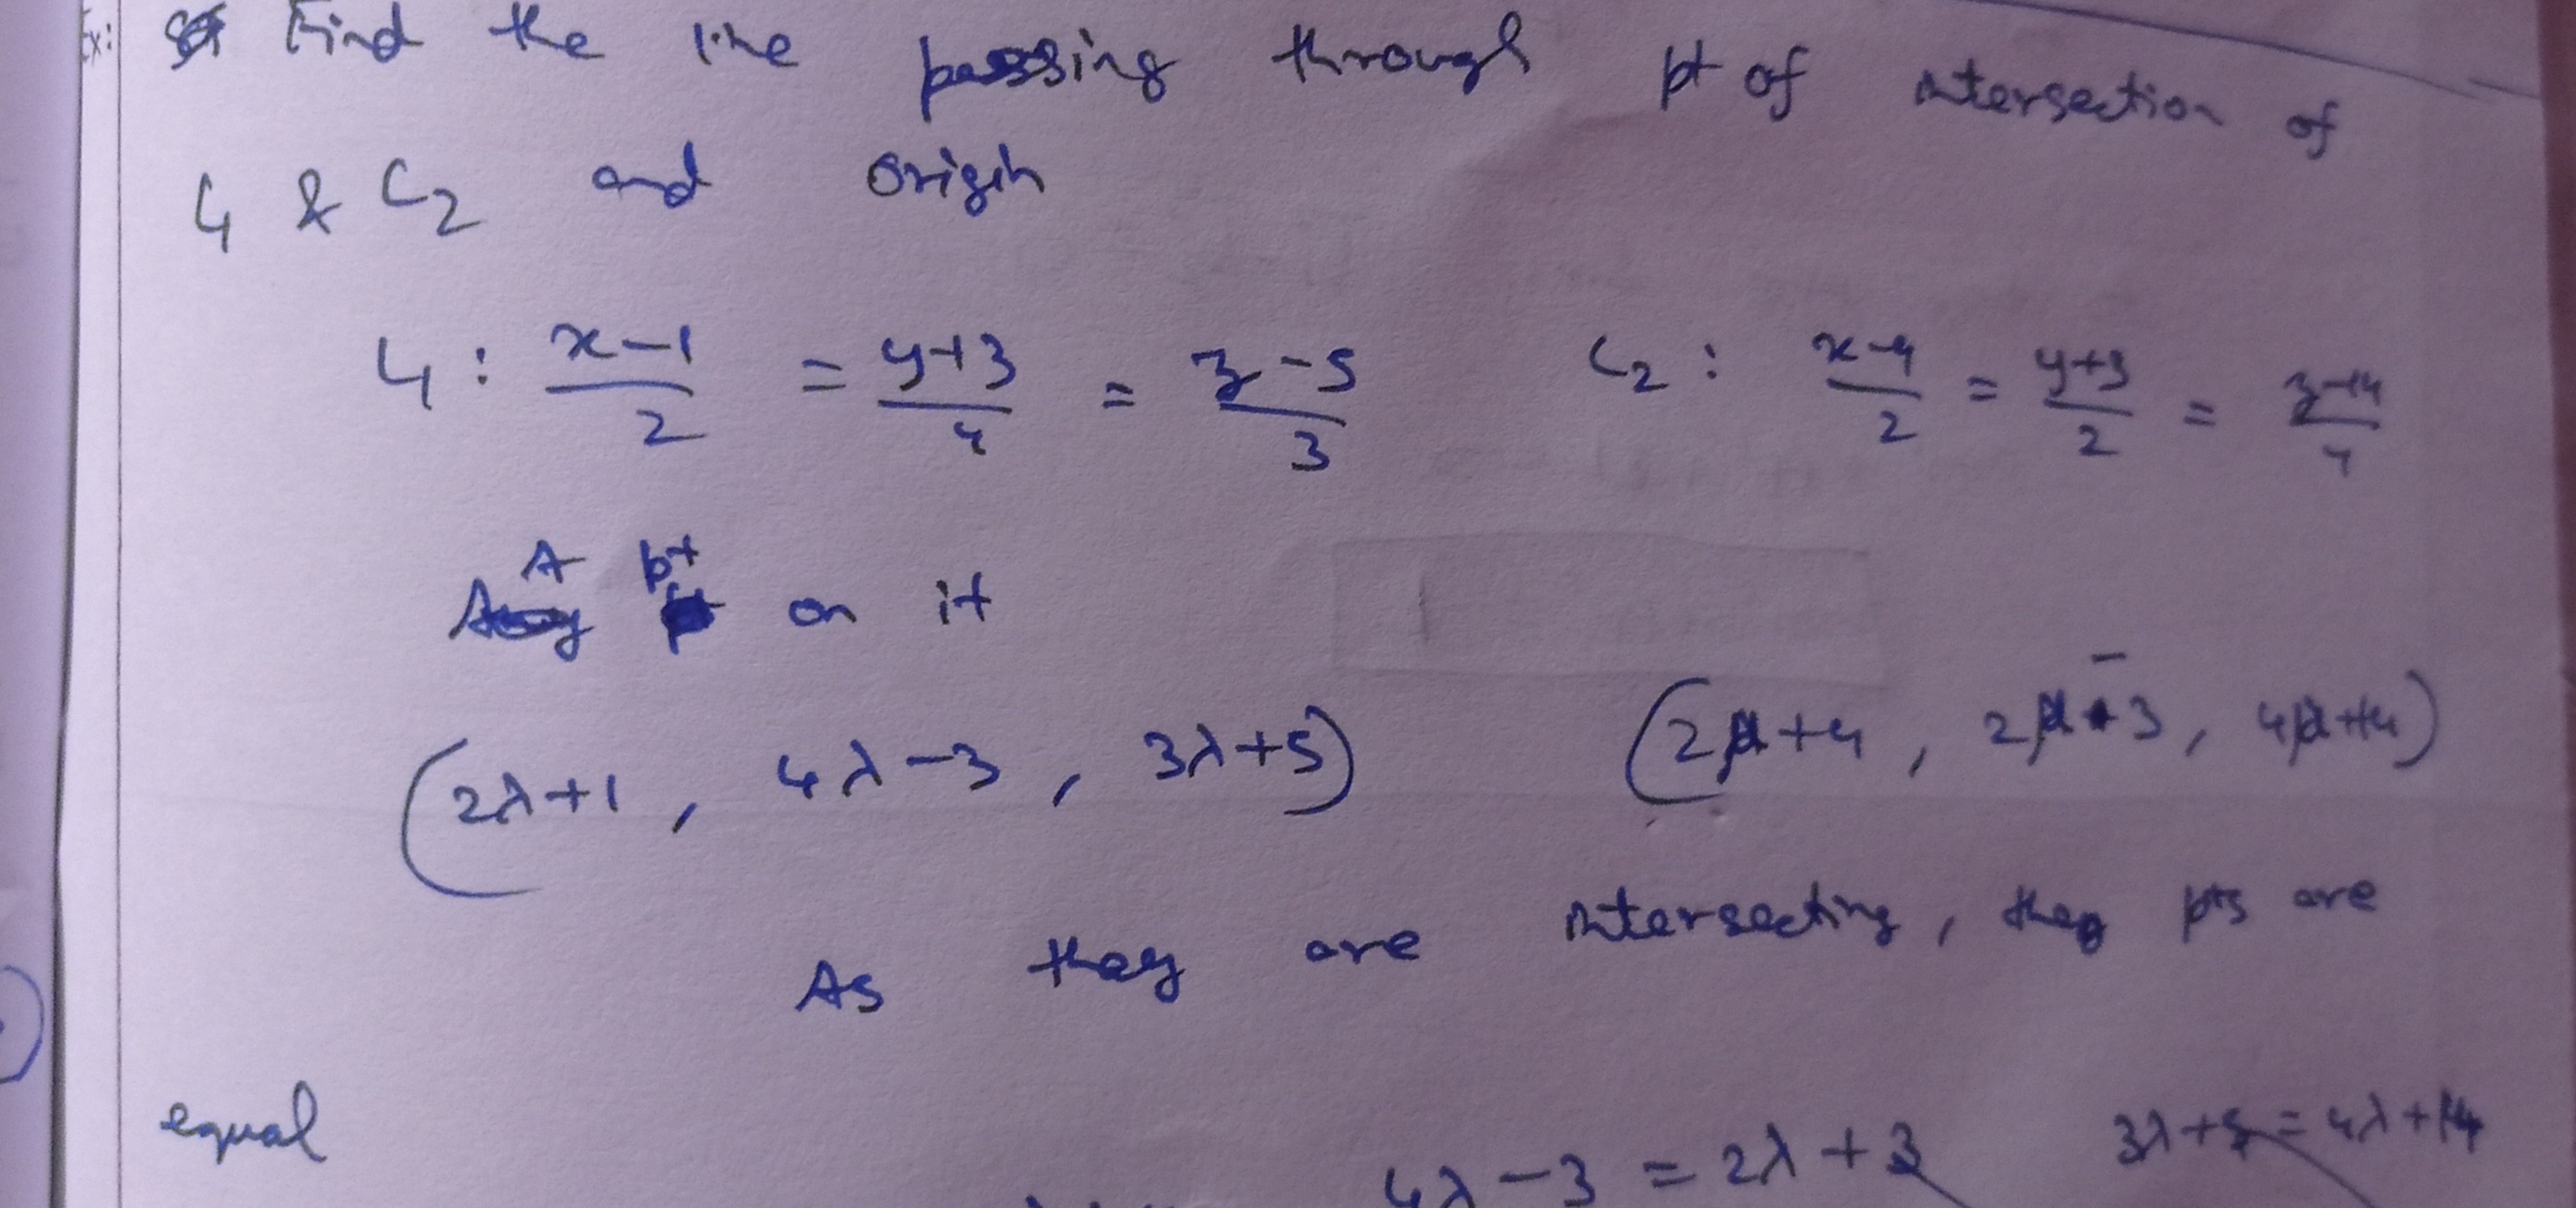 Ex: Find the line passing through pt of intersection of
L1 & L2 and origin
L1 : x-1/2 = y+3/4 = z-5/3 L2 : x-4/2 = y+3/2 = z-14/4
A pt on it
(2λ+1, 4λ-3, 3λ+5) (2μ+4, 2μ-3, 4μ+14)
As they are intersecting, they pts are
equal
4λ-3 = 2λ+3 3λ+5 = 4λ+14